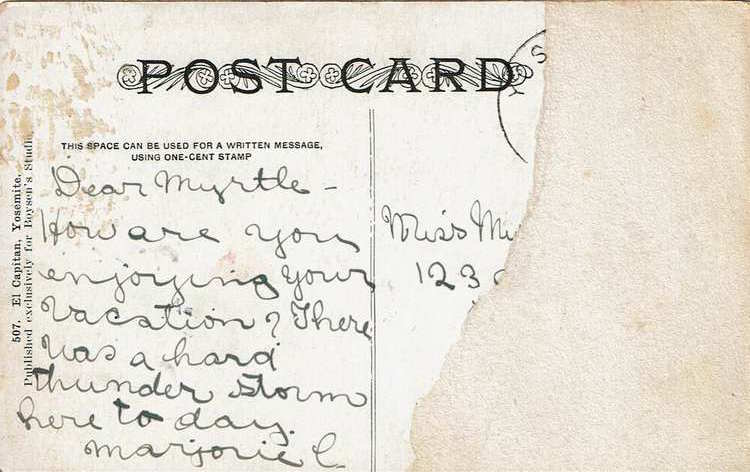 POST CARD
THIS SPACE CAN BE USED FOR A WRITTEN MESSAGE,
USING ONE-CENT STAMP
507. El Capitan, Yosemite.
Published exclusively for Boysen's Studio
Dear Myrtle -
How are you
enjoying your
vacation? There
was a hard
thunder storm
here to day.
Marjorie C.
Miss My
123